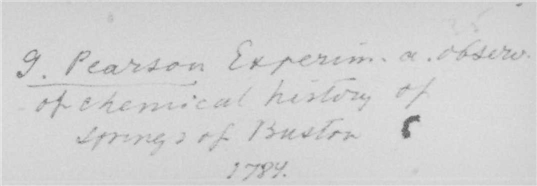 G. Pearson Experim. a. observ.
of chemical history of
springs of Buxton
1784.